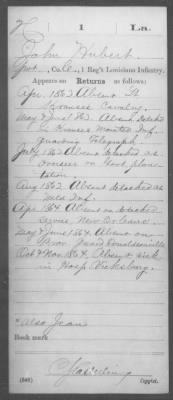 1 La.
John Hubert
Pvt., Co. C., 1 Reg't Louisiana Infantry.
Appears on Returns as follows:
Apr. 1863 Absent
Cavalry.
May & June 1863. Absent detached
Mounted Inf.
Guarding Telegraph
July 1863 Absent detached as
overseer on Govt plan-
tation.
Aug 1863 Absent detached as
Med Inf.
Apr 1864 Absent on detached
Service New Orleans.
May & June 1864. Absent on
Prov Guard Donaldsonville
Oct & Nov 1864, Absent sick
in Hosp Vicksburg.
*Also Jean
Book mark
(546) Copyist.